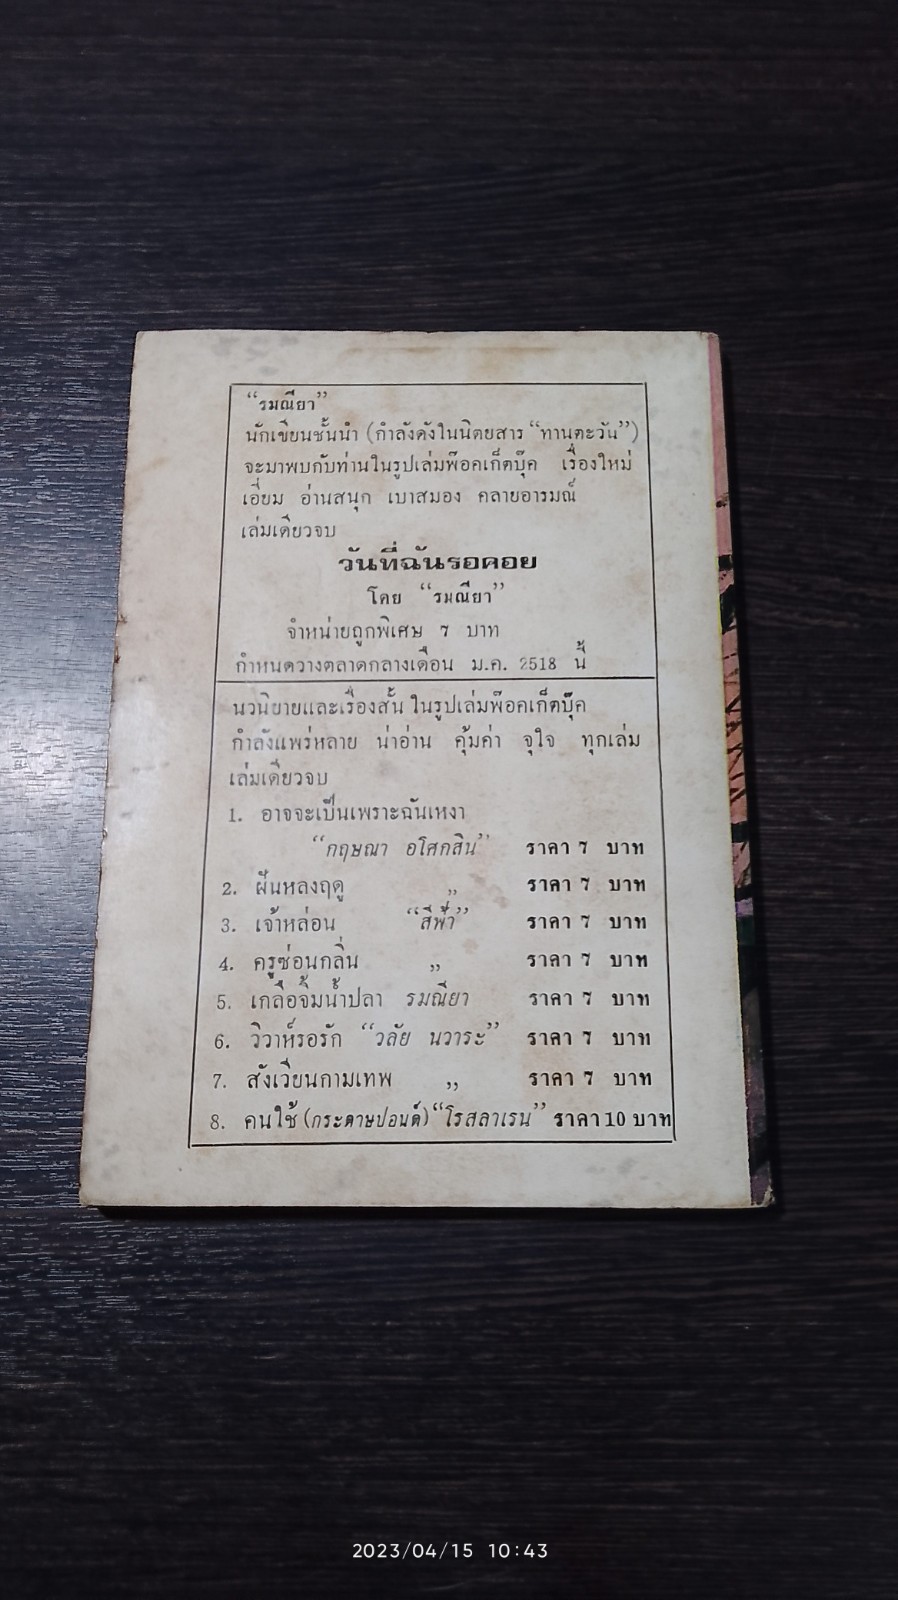 “รมณียา”
นักเขียนชั้นนำ (กำลังดังในนิตยสาร “ทานตะวัน”)
จะมาพบกับท่านในรูปเล่มพ๊อคเก็ตบุ๊ค เรื่องใหม่
เอี่ยม อ่านสนุก เบาสมอง คลายอารมณ์
เล่มเดียวจบ
วันที่ฉันรอคอย
โดย “รมณียา”
จำหน่ายถูกพิเศษ 7 บาท
กำหนดวางตลาดกลางเดือน ม.ค. 2518 นี้
นวนิยายและเรื่องสั้น ในรูปเล่มพ๊อคเก็ตบุ๊ค
กำลังแพร่หลาย น่าอ่าน คุ้มค่า จุใจ ทุกเล่ม
เล่มเดียวจบ
1. อาจจะเป็นเพราะฉันเหงา
“กฤษณา อโศกสิน” ราคา 7 บาท
2. ฝันหลงฤดู ,, ราคา 7 บาท
3. เจ้าหล่อน “สีฟ้า” ราคา 7 บาท
4. ครูซ่อนกลิ่น ,, ราคา 7 บาท
5. เกลือจิ้มน้ำปลา รมณียา ราคา 7 บาท
6. วิวาห์รอรัก “วลัย นวาระ” ราคา 7 บาท
7. สังเวียนกามเทพ ,, ราคา 7 บาท
8. คนใช้ (กระดาษปอนด์) “โรสลาเรน” ราคา 10 บาท
2023/04/15 10:43